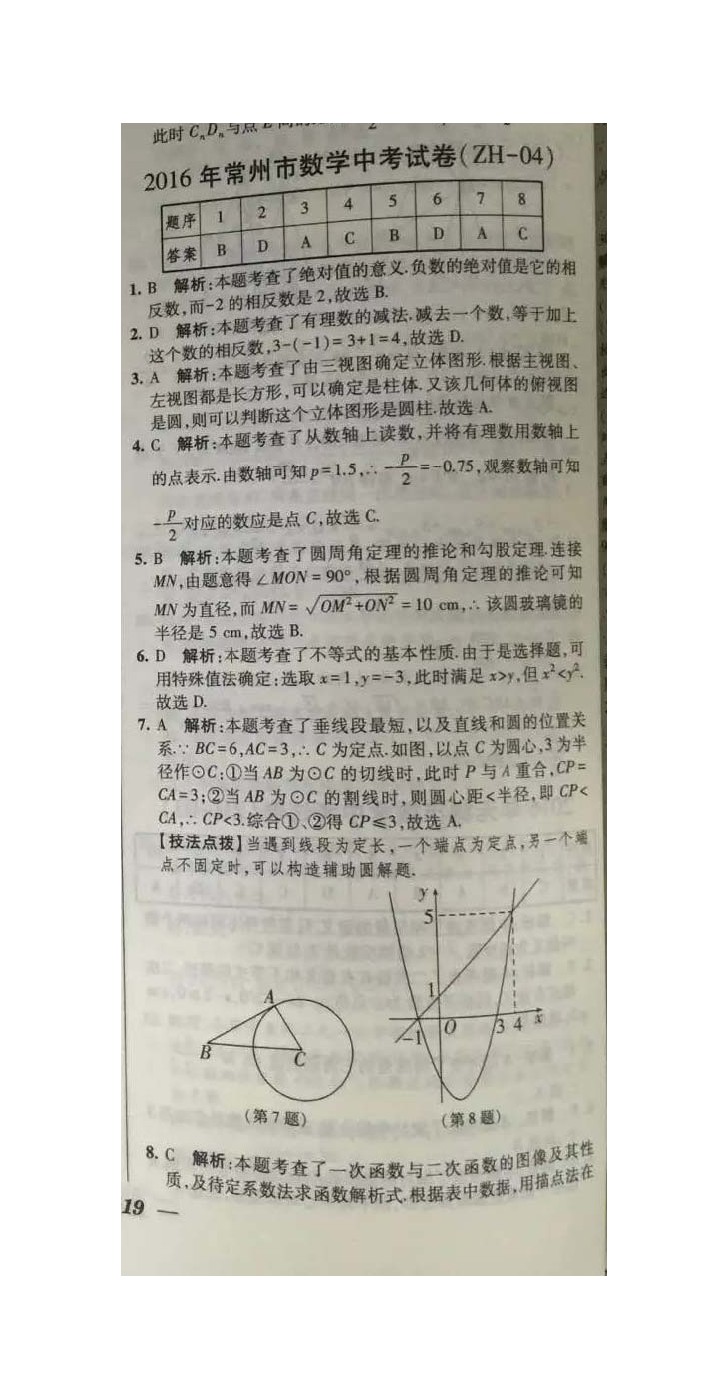 此时 CₙDₙ与点
2016 年常州市数学中考试卷(ZH-04)
题序 1 2 3 4 5 6 7 8
答案 B D A C B D A C
1. B 解析:本题考查了绝对值的意义.负数的绝对值是它的相
反数,而-2 的相反数是 2,故选 B.
2. D 解析:本题考查了有理数的减法.减去一个数,等于加上
这个数的相反数,3-(-1)=3+1=4,故选 D.
3. A 解析:本题考查了由三视图确定立体图形.根据主视图、
左视图都是长方形,可以确定是柱体.又该几何体的俯视图
是圆,则可以判断这个立体图形是圆柱.故选 A.
4. C 解析:本题考查了从数轴上读数,并将有理数用数轴上
的点表示.由数轴可知 p=1.5,∴ -p/2=-0.75,观察数轴可知
-p/2对应的数应是点 C,故选 C.
5. B 解析:本题考查了圆周角定理的推论和勾股定理.连接
MN,由题意得∠MON=90°,根据圆周角定理的推论可知
MN 为直径,而 MN=√(OM²+ON²)=10 cm,∴ 该圆玻璃镜的
半径是 5 cm,故选 B.
6. D 解析:本题考查了不等式的基本性质.由于是选择题,可
用特殊值法确定:选取 x=1,y=-3,此时满足 x>y,但 x²<y².
故选 D.
7. A 解析:本题考查了垂线段最短,以及直线和圆的位置关
系.∵ BC=6,AC=3,∴ C 为定点.如图,以点 C 为圆心,3 为半
径作⊙C;①当 AB 为⊙C 的切线时,此时 P 与 A 重合,CP=
CA=3;②当 AB 为⊙C 的割线时,则圆心距<半径,即 CP<
CA,∴ CP<3.综合①、②得 CP≤3,故选 A.
【技法点拨】当遇到线段为定长,一个端点为定点,另一个端
点不固定时,可以构造辅助圆解题.
A
B
C
(第 7 题)
y
5
1
-1 O 3 4 x
(第 8 题)
8. C 解析:本题考查了一次函数与二次函数的图像及其性
质,及待定系数法求函数解析式.根据表中数据,用描点法在
19 —